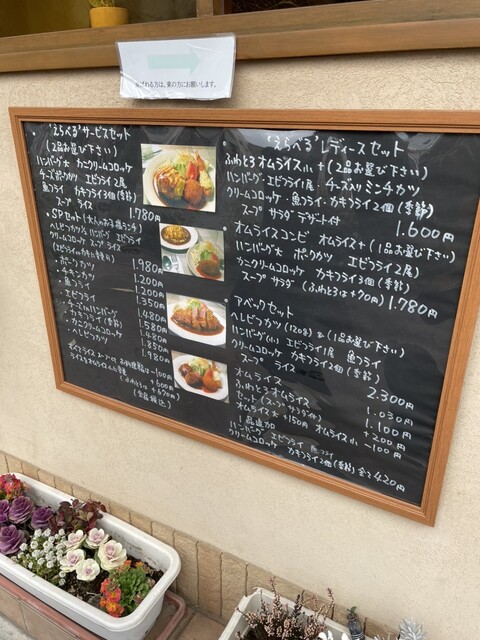 ばれる方は、東の方にお願いします。
・"えらべる"サービスセット
(2品お選び下さい)
ハンバーグ大 カニクリームコロッケ
チーズポークカツ エビフライ2尾
魚フライ カキフライ3個(季節)
スープ ライス 1.780円
・SPセット(大人のお子様ランチ)
ヘレビフカツ ハンバーグ エビフライ
クリームコロッケ スープ ライス
1.980円
・ポークカツ 1.200円
・チキンカツ 1.200円
・魚フライ 1.350円
・エビフライ 1.480円
・チーズinハンバーグ 1.580円
・カキフライ(季節) 1.480円
・カニクリームコロッケ 1.850円
・ヘレビフカツ 1.980円
ライス スープ
-100円
+600円
+670円)
(全品税込)
"えらべる"レディースセット
ふわとろオムライス小+(2品お選び下さい)
ハンバーグ・エビフライ1尾・チーズ入りミンチカツ
クリームコロッケ・魚フライ・カキフライ2個(季節)
スープ サラダ デザート付 1.600円
オムライスコンビ オムライス+(1品お選び下さい)
ハンバーグ大 ポークカツ エビフライ2尾)
カニクリームコロッケ カキフライ3個(季節)
スープ サラダ (ふわとろは+70円) 1.780円
アベックセット
ヘレビフカツ(120g)&(1品お選び下さい)
ハンバーグ(小) エビフライ1尾 魚フライ
クリームコロッケ カキフライ2個(季節)
スープ ライス 2.300
オムライス 1.030円
ふわとろオムライス 1.100円
セット(スープ サラダ付) +200円
オムライス大 +150円 オムライス小 -100円
1品追加
ハンバーグ エビフライ 魚フライ
クリームコロッケ カキフライ2個(季節) 全て420円